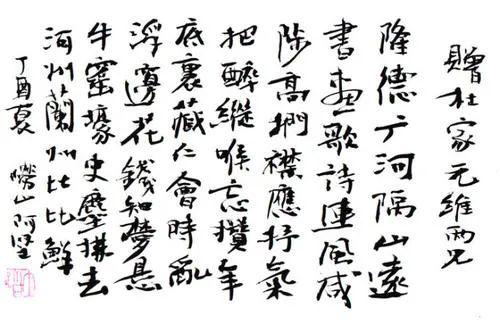 贈杜家元維兩兄
隆德广河隔山遠
書畫歌詩連風咸
陟高捫襟應抒氣
把醉縱喉忘攢年
底裏藏仁會時亂
浮邊花錢知夢懸
牛窰史塵去
河州蘭州比比鮮
丁酉夏 嶗山阿堅